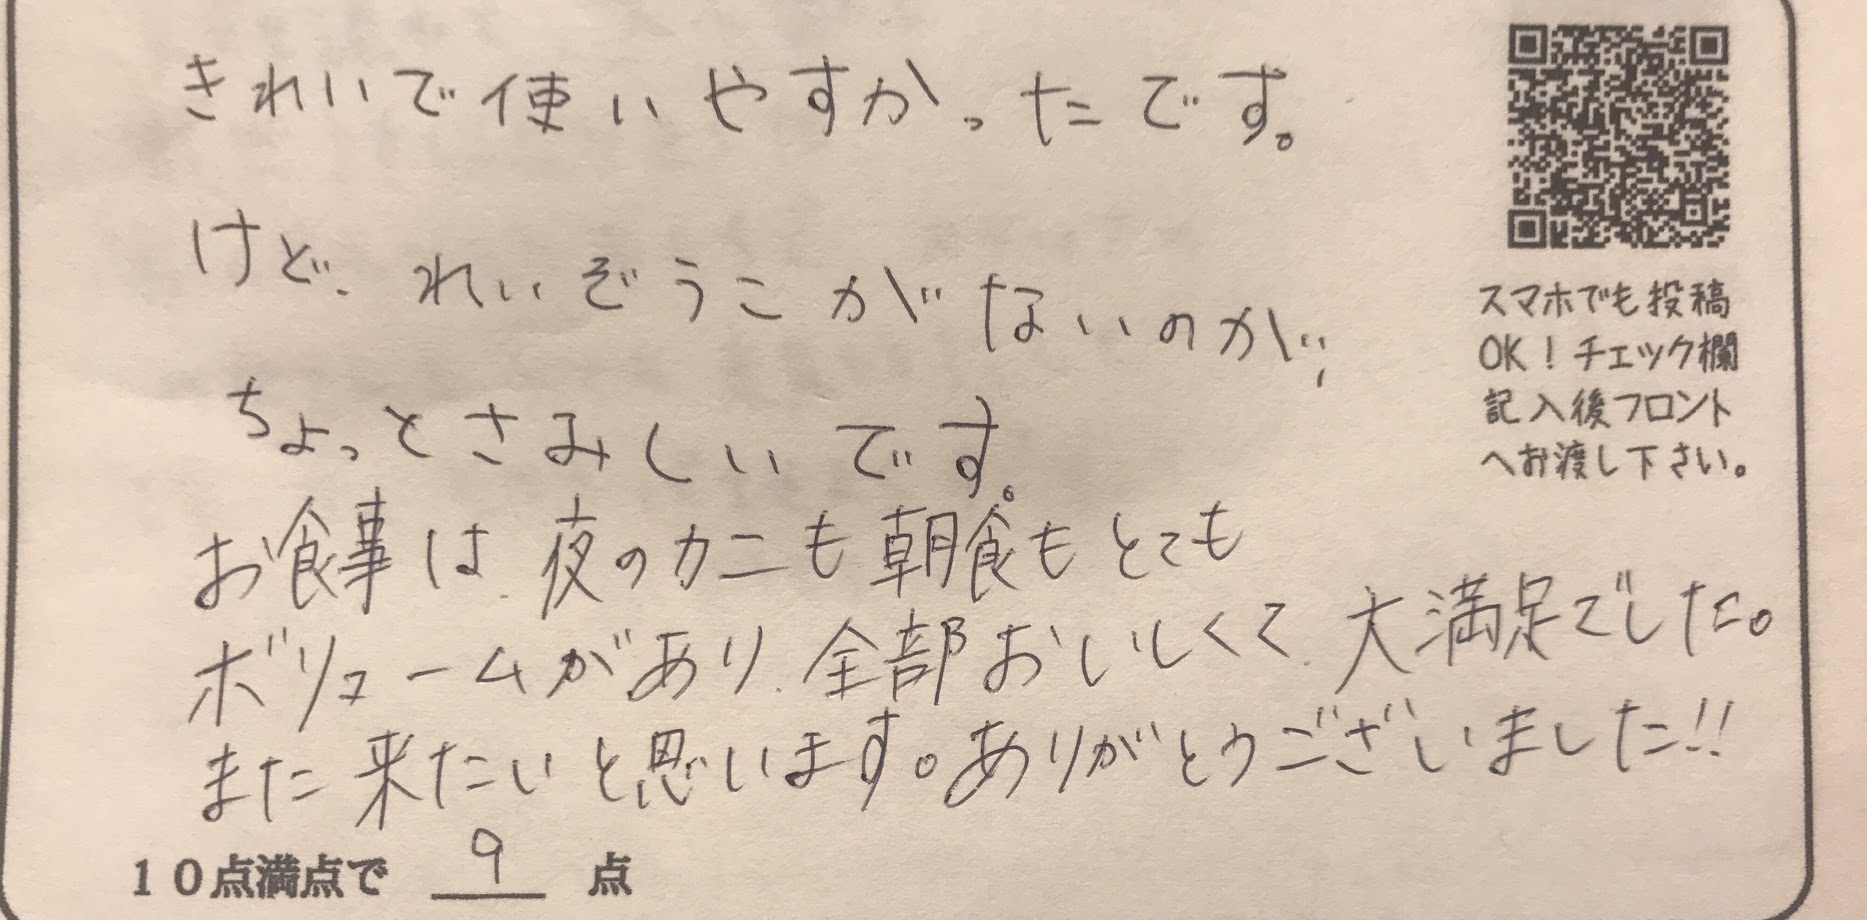 きれいで使いやすかったです。
けど、れいぞうこがないのが、
ちょっとさみしいです。
お食事は、夜のカニも朝食もとても
ボリュームがあり、全部おいしくて、大満足でした。
また来たいと思います。ありがとうございました!!
10点満点で 9 点
スマホでも投稿
OK！チェック欄
記入後フロント
へお渡し下さい。